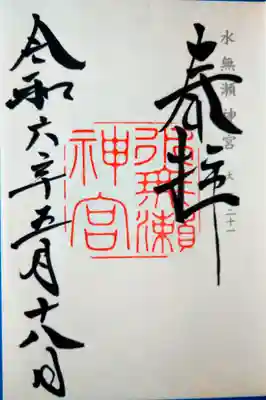 奉拝
水無瀬神宮
二十一
水無瀬
神宮
令和六年五月十八日